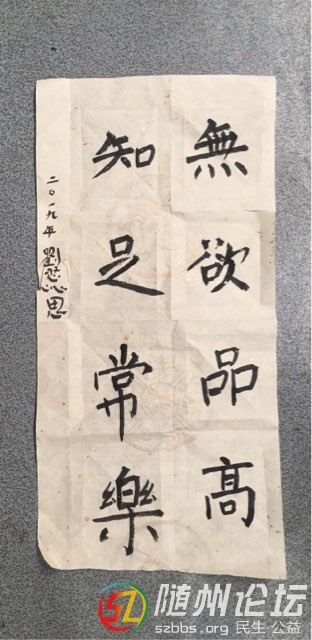 無欲品高
知足常樂
二〇一九年 劉慈思
随州论坛
szbbs.org 民生 公益